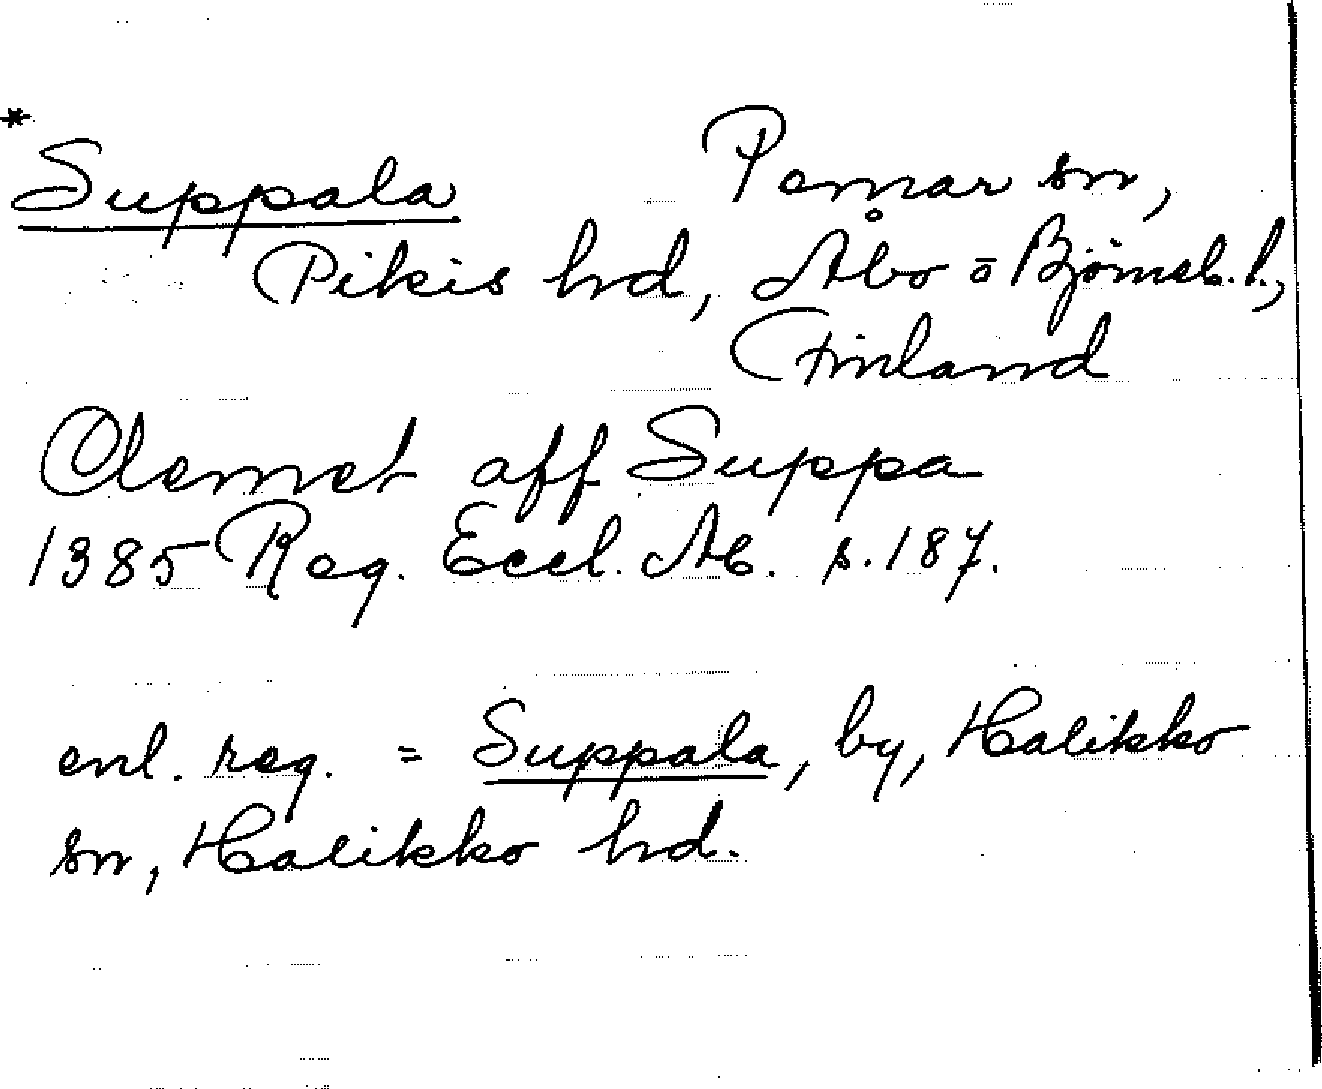 * Suppala Pemar sn,
Pikis hd, Åbo o Björneb. l.,
Finland
Clemet aff Suppa
1385 Reg. Eccl. Ab. s. 187.
enl. reg. = Suppala, by, Halikko
sn, Halikko hd.